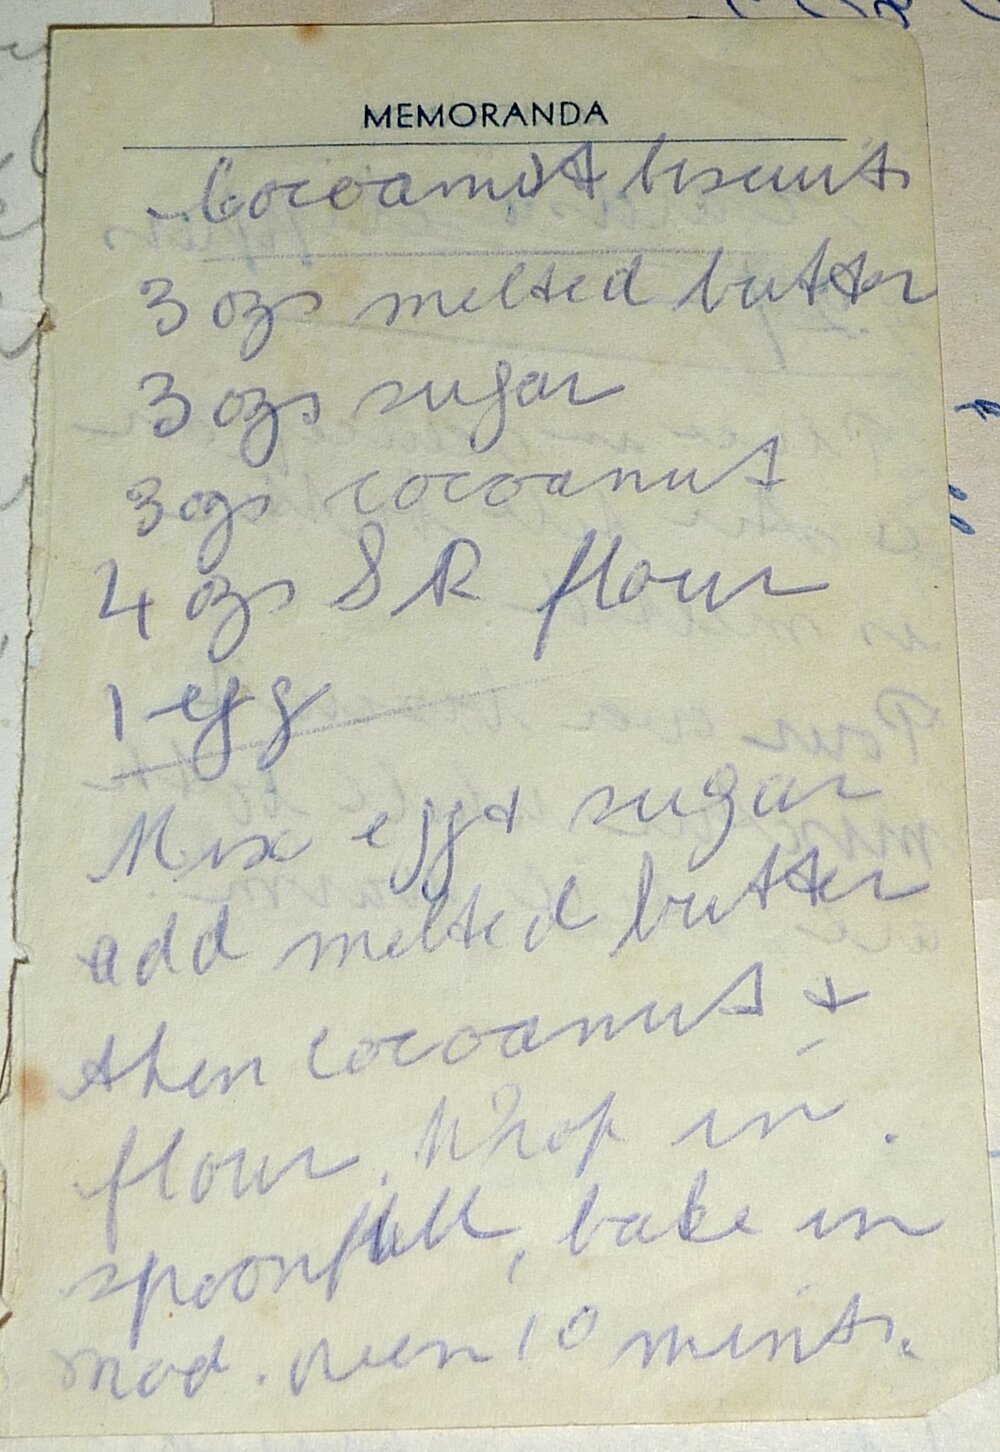 MEMORANDA
Cocoanut biscuits
3 ozs melted butter
3 ozs sugar
3 ozs cocoanut
4 ozs S R flour
1 egg
Mix egg + sugar
add melted butter
then cocoanut +
flour. Drop in
spoonfull, bake in
mod. oven 10 mints.